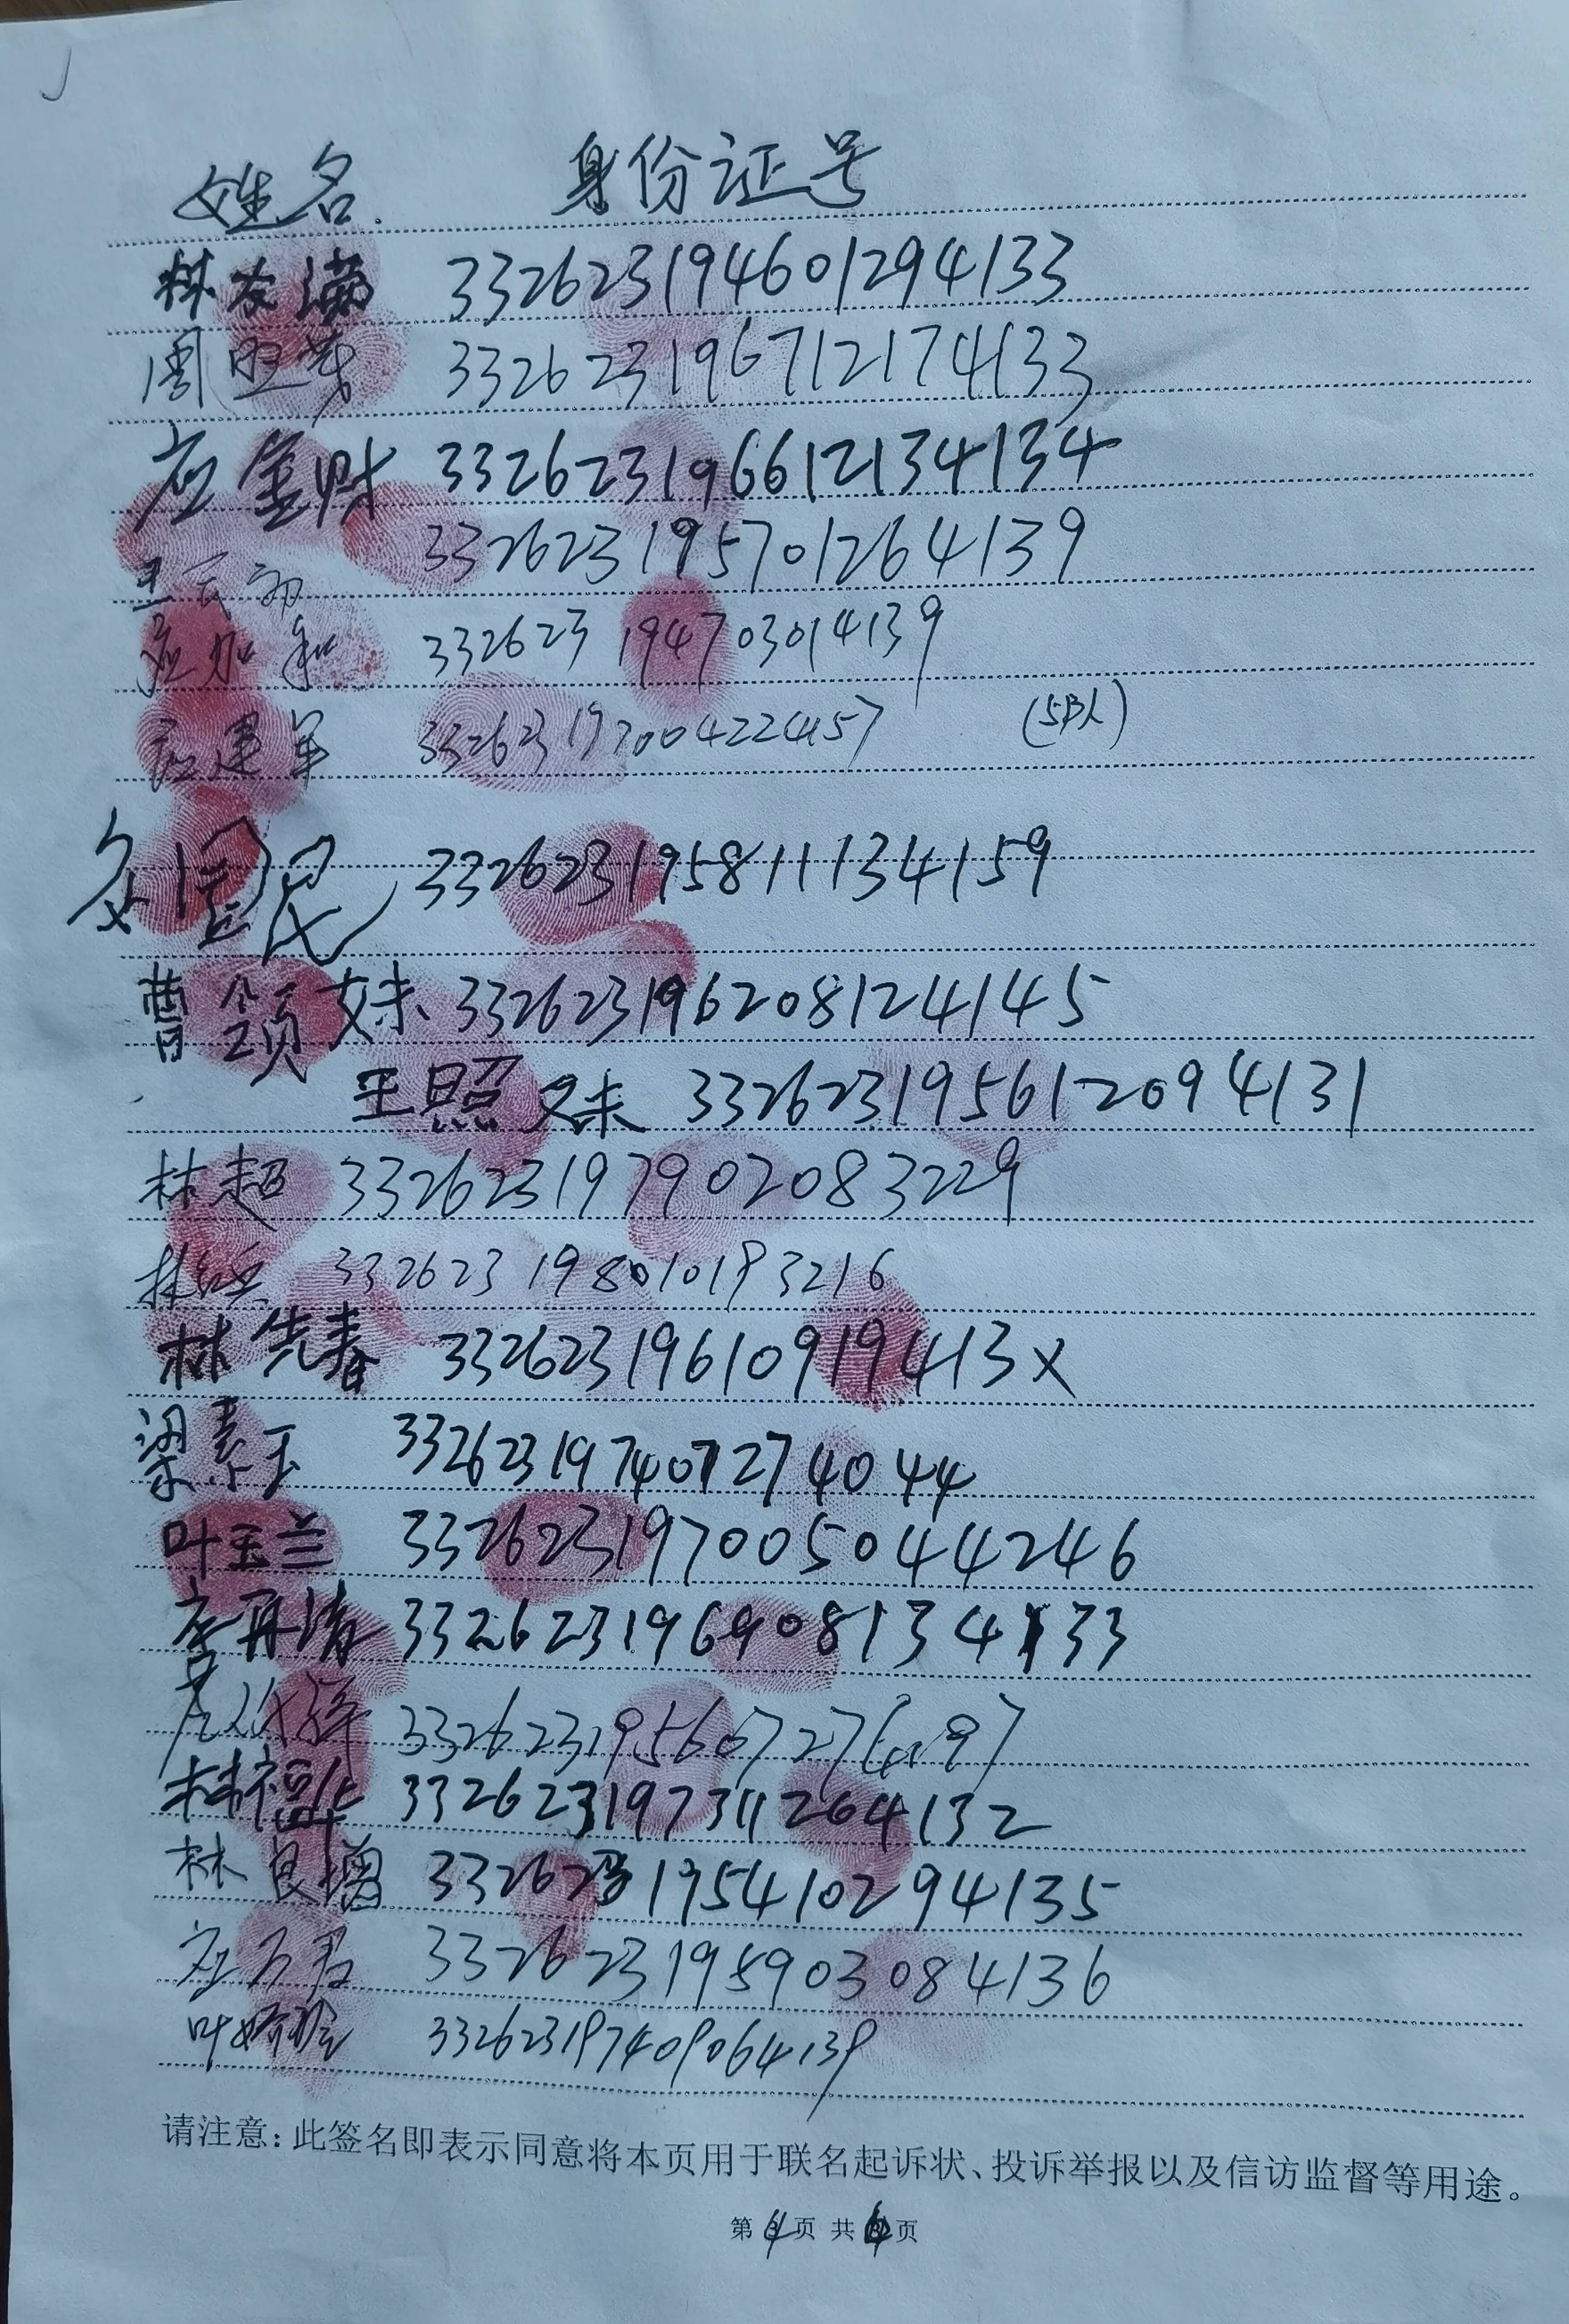 姓名 身份证号
林友满 332623194601294133
周 332623196712174133
应金财 332623196612134134
王 332623195701264139
应 332623194703014139
应建军 332623197004224157
国民 332623195811134159
曹领妹 332623196208124145
王照妹 332623195612094131
林超 332623197902083229
332623198010193216
林先春 33262319610919413X
梁素玉 332623197407274044
叶玉兰 332623197005044246
应再清 332623196908134133
林福华 332623197311264132
林良增 332623195410294135
应 332623195903084136
叶 332623197409064139
请注意：此签名即表示同意将本页用于联名起诉状、投诉举报以及信访监督等用途。
第4页 共页